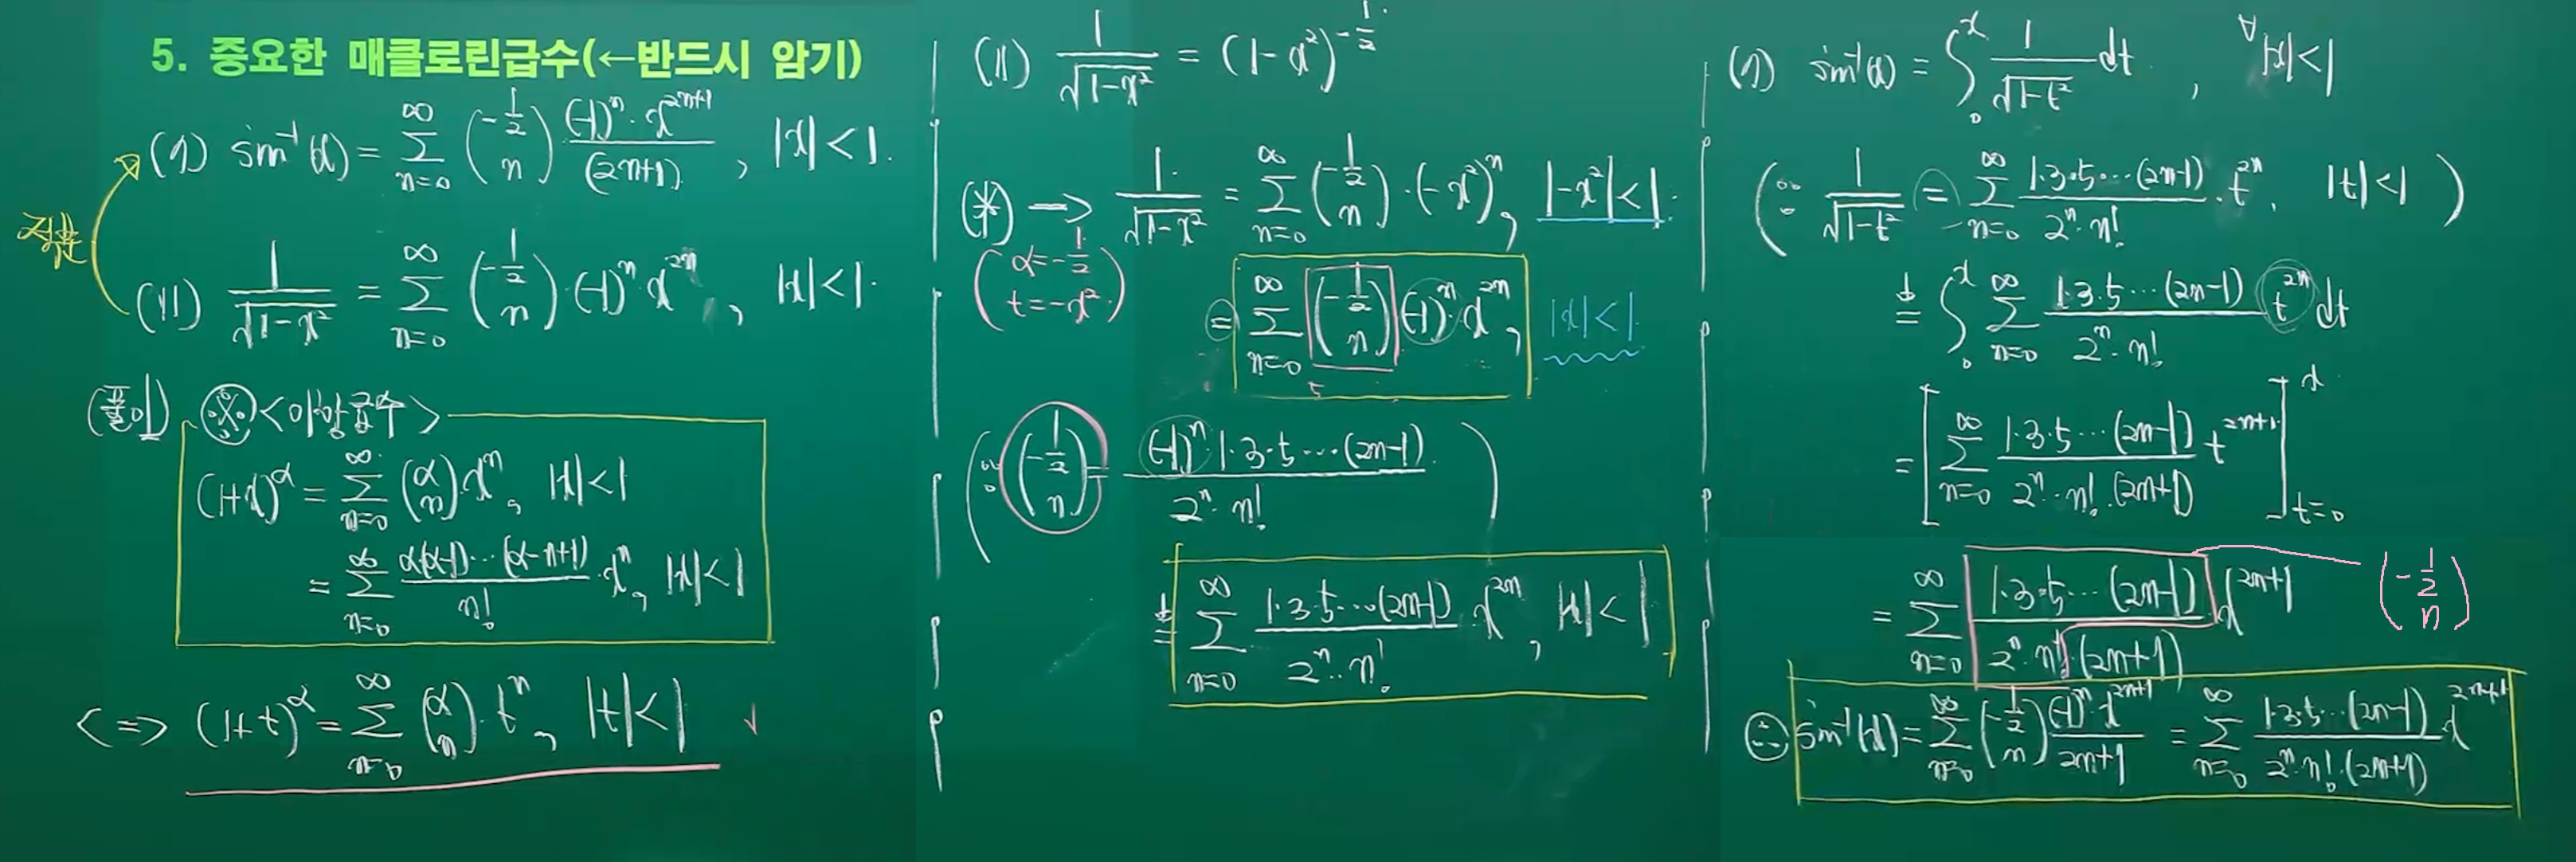 5. 중요한 매클로린급수(←반드시 암기)
(10) sin⁻¹(x) = ∑_{n=0}^{∞} (-1/2 n) (-1)ⁿ·x²ⁿ⁺¹/(2n+1), |x|<1.
적분
(11) 1/√(1-x²) = ∑_{n=0}^{∞} (-1/2 n)·(-1)ⁿ·x²ⁿ, |x|<1.
(풀이) ※<이항급수>
(1+x)^α = ∑_{n=0}^{∞} (α n)·xⁿ, |x|<1
= ∑_{n=0}^{∞} α(α-1)···(α-n+1)/n!·xⁿ, |x|<1
<=> (1+t)^α = ∑_{n=0}^{∞} (α n)·tⁿ, |t|<1
(11) 1/√(1-x²) = (1-x²)^{-1/2}
(*) → 1/√(1-x²) = ∑_{n=0}^{∞} (-1/2 n)·(-x²)ⁿ, |-x²|<1.
(α=-1/2
t=-x²)
= ∑_{n=0}^{∞} (-1/2 n)(-1)ⁿ·x²ⁿ, |x|<1.
(∵ (-1/2 n) = (-1)ⁿ·1·3·5···(2n-1)/2ⁿ·n!)
= ∑_{n=0}^{∞} 1·3·5···(2n-1)/2ⁿ·n!·x²ⁿ, |x|<1
(10) sin⁻¹(x) = ∫₀ˣ 1/√(1-t²) dt, ∀|x|<1
(∵ 1/√(1-t²) = ∑_{n=0}^{∞} 1·3·5···(2n-1)/2ⁿ·n!·t²ⁿ, |t|<1)
= ∫₀ˣ ∑_{n=0}^{∞} 1·3·5···(2n-1)/2ⁿ·n! t²ⁿ dt
= [∑_{n=0}^{∞} 1·3·5···(2n-1)/2ⁿ·n!·(2n+1) t²ⁿ⁺¹]_{t=0}^{x}
= ∑_{n=0}^{∞} 1·3·5···(2n-1)/2ⁿ·n!·(2n+1) x²ⁿ⁺¹ (-1/2 n)
∴ sin⁻¹(x) = ∑_{n=0}^{∞} (-1/2 n) (-1)ⁿ·x²ⁿ⁺¹/2n+1 = ∑_{n=0}^{∞} 1·3·5···(2n-1)/2ⁿ·n!·(2n+1) x²ⁿ⁺¹